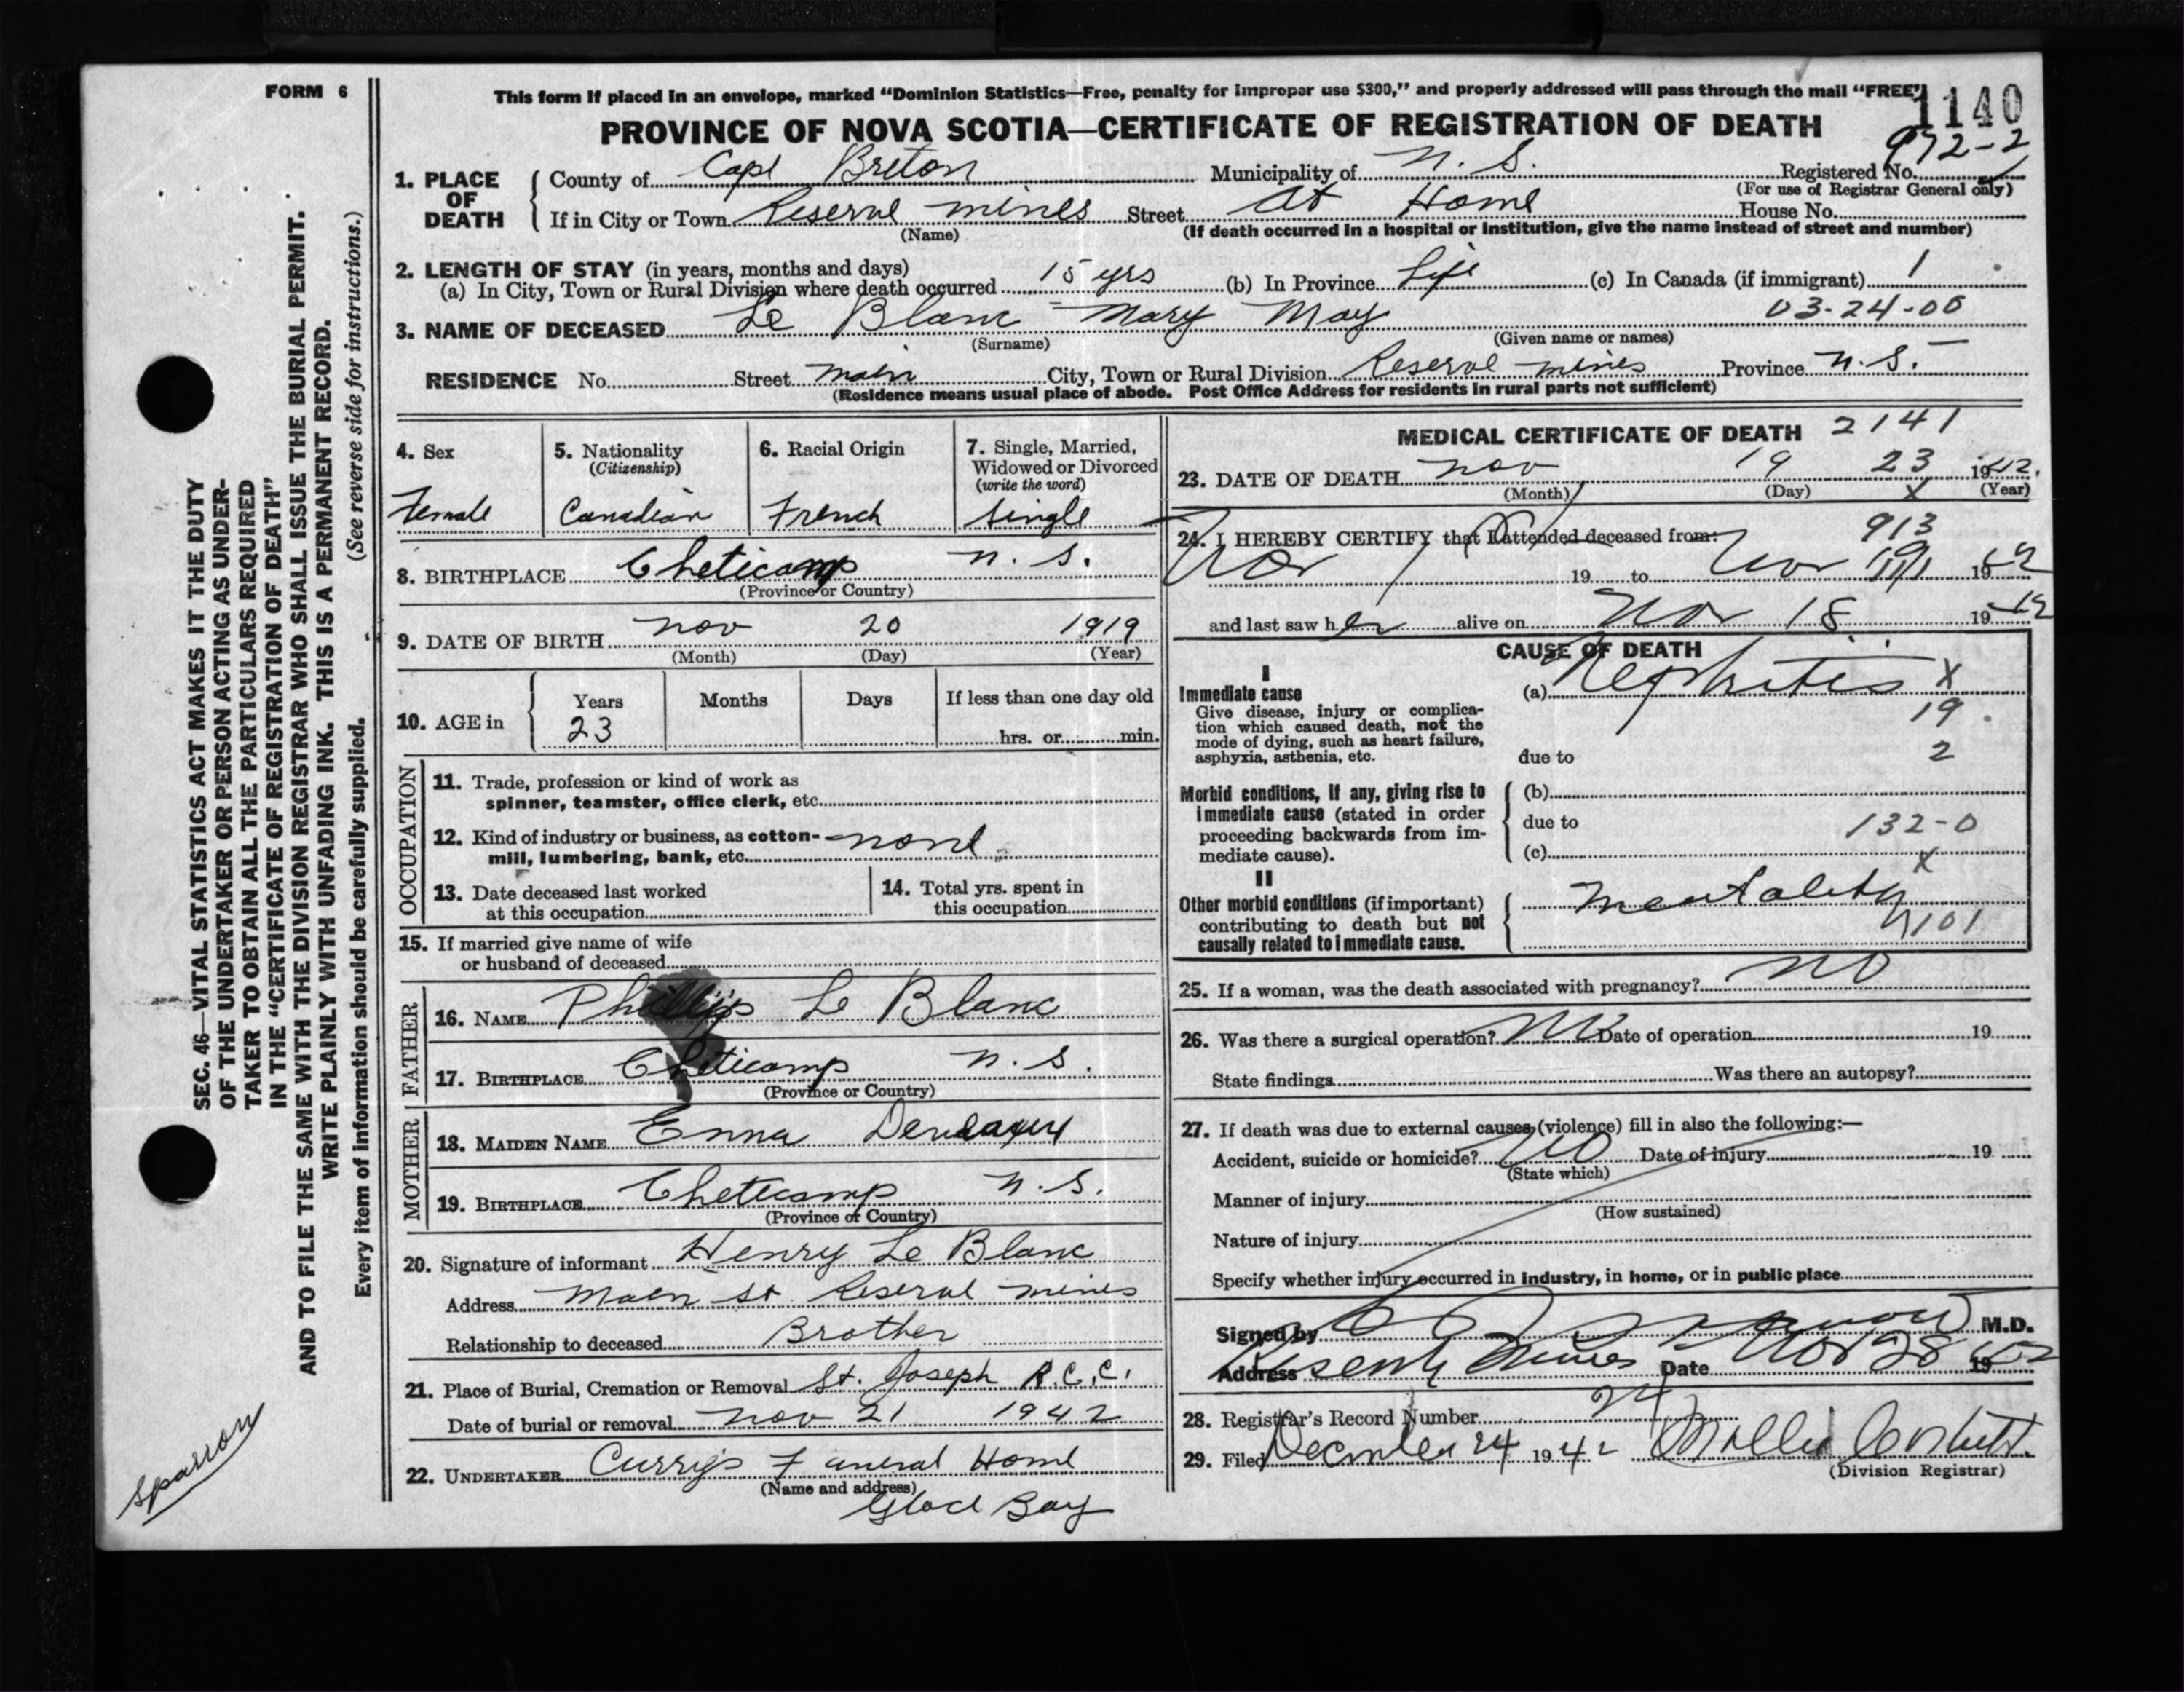 FORM 6
This form if placed in an envelope, marked “Dominion Statistics—Free, penalty for improper use $300,” and properly addressed will pass through the mail “FREE”
1140
PROVINCE OF NOVA SCOTIA—CERTIFICATE OF REGISTRATION OF DEATH
972-2
1. PLACE OF DEATH
County of Cape Breton Municipality of N. S. Registered No.
(For use of Registrar General only)
If in City or Town Reserve mines Street At Home House No.
(Name) (If death occurred in a hospital or institution, give the name instead of street and number)
2. LENGTH OF STAY (in years, months and days)
(a) In City, Town or Rural Division where death occurred 15 yrs (b) In Province Life (c) In Canada (if immigrant) 1
03-24-00
3. NAME OF DECEASED Le Blanc Mary May
(Surname) (Given name or names)
RESIDENCE No. Street Main City, Town or Rural Division Reserve mines Province N. S.
(Residence means usual place of abode. Post Office Address for residents in rural parts not sufficient)
4. Sex
Female
5. Nationality
(Citizenship)
Canadian
6. Racial Origin
French
7. Single, Married,
Widowed or Divorced
(write the word)
Single
8. BIRTHPLACE Cheticamp N. S.
(Province or Country)
9. DATE OF BIRTH Nov 20 1919
(Month) (Day) (Year)
10. AGE in
Years Months Days If less than one day old
23
hrs. or min.
OCCUPATION
11. Trade, profession or kind of work as
spinner, teamster, office clerk, etc.
12. Kind of industry or business, as cotton-
mill, lumbering, bank, etc. none
13. Date deceased last worked
at this occupation
14. Total yrs. spent in
this occupation
15. If married give name of wife
or husband of deceased
FATHER
16. NAME Phillips Le Blanc
17. BIRTHPLACE Cheticamp N. S.
(Province or Country)
MOTHER
18. MAIDEN NAME Enna
19. BIRTHPLACE Cheticamp N. S.
(Province or Country)
20. Signature of informant Henry Le Blanc
Address Main St. Reserve mines
Relationship to deceased Brother
21. Place of Burial, Cremation or Removal St. Joseph R.C.C.
Date of burial or removal Nov 21 1942
22. UNDERTAKER Curry's Funeral Home
(Name and address)
Glace Bay
MEDICAL CERTIFICATE OF DEATH 2141
23. DATE OF DEATH Nov 19 23 1942.
(Month) (Day) X (Year)
913
24. I HEREBY CERTIFY that I attended deceased from:
Nov 19 to Nov 19 1942
and last saw her alive on Nov 18 1942
CAUSE OF DEATH
I
Immediate cause
Give disease, injury or complica-
tion which caused death, not the
mode of dying, such as heart failure,
asphyxia, asthenia, etc.
(a) Nephritis X
19
due to 2
Morbid conditions, if any, giving rise to
immediate cause (stated in order
proceeding backwards from im-
mediate cause).
(b)
due to 132-0
(c) X
II
Other morbid conditions (if important)
contributing to death but not
causally related to immediate cause.
Mentality
4101
25. If a woman, was the death associated with pregnancy? No
26. Was there a surgical operation? No Date of operation 19
State findings Was there an autopsy?
27. If death was due to external causes (violence) fill in also the following:—
Accident, suicide or homicide? No Date of injury 19
(State which)
Manner of injury
(How sustained)
Nature of injury
Specify whether injury occurred in industry, in home, or in public place
Signed by M.D.
Address Reserve Mines Date Nov 28 1942
28. Registrar's Record Number 24
29. Filed December 24 1942 Mollie Corbett
(Division Registrar)
SEC. 46—VITAL STATISTICS ACT MAKES IT THE DUTY
OF THE UNDERTAKER OR PERSON ACTING AS UNDER-
TAKER TO OBTAIN ALL THE PARTICULARS REQUIRED
IN THE “CERTIFICATE OF REGISTRATION OF DEATH”
AND TO FILE THE SAME WITH THE DIVISION REGISTRAR WHO SHALL ISSUE THE BURIAL PERMIT.
WRITE PLAINLY WITH UNFADING INK. THIS IS A PERMANENT RECORD.
Every item of information should be carefully supplied. (See reverse side for instructions.)
Sparrow